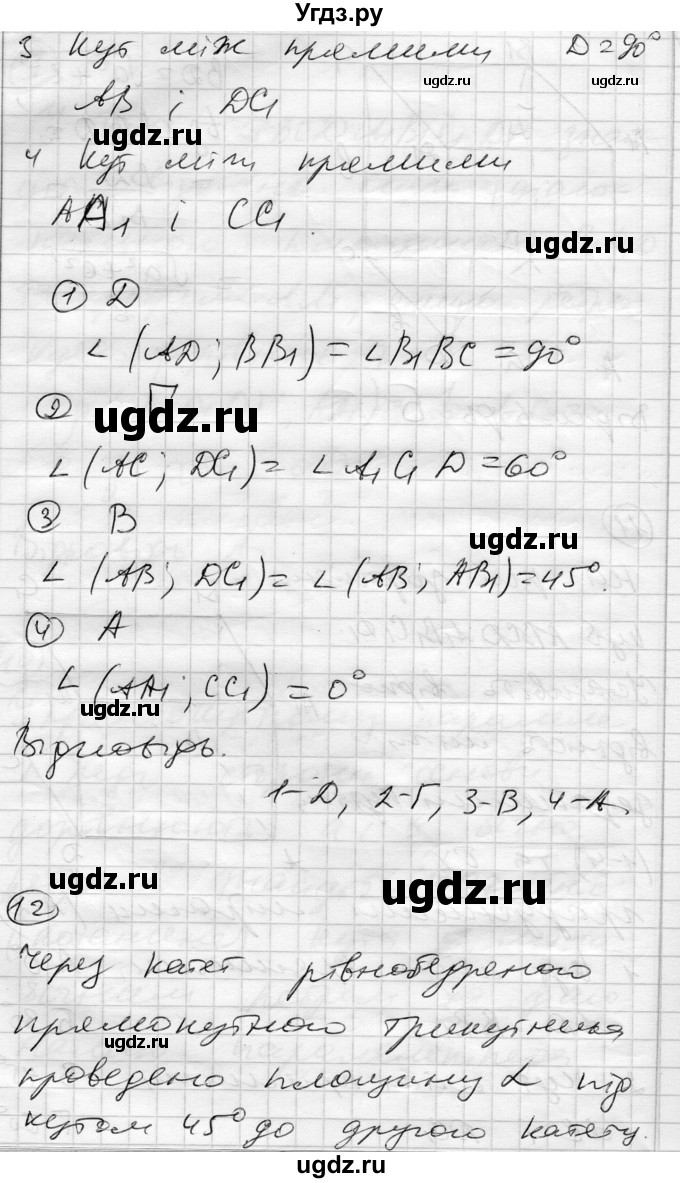 Угдз.ру
3 Кут між прямими D = 90°
ugdz.ru
AB і DC₁
ugdz.ru
ugdz.ru
4 Кут між прямими
AA₁ і CC₁
ugdz.ru
① D
∠(AD; BB₁) = ∠B₁BC = 90°
② Г
ugdz.ru
∠(AC; DC₁) = ∠A₁C₁D = 60°
③ B
ugdz.ru
∠(AB; DC₁) = ∠(AB; AB₁) = 45°.
④ A
∠(AA₁; CC₁) = 0°
ugdz.ru
Відповідь.
1-D, 2-Г, 3-В, 4-А.
ugdz.ru
ugdz.ru
⑫
Через катет рівнобедреного
прямокутного трикутника
ugdz.ru
проведено площину α під
кутом 45° до другого катету.
ugdz.ru